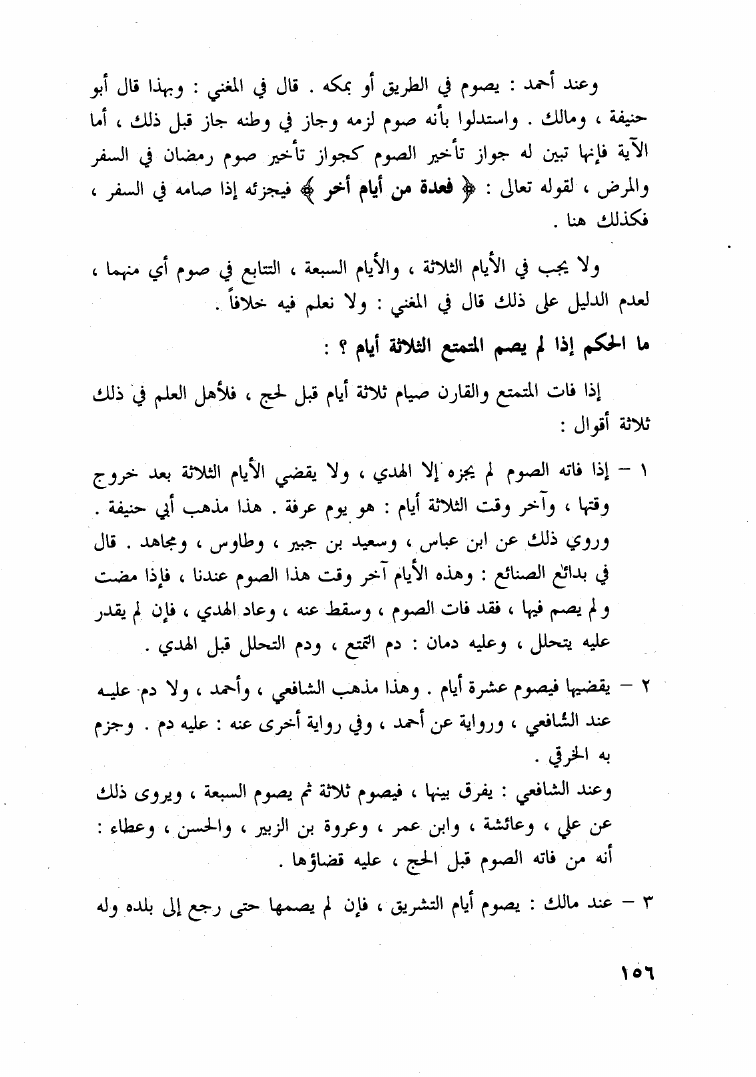 وعند أحمد : يصوم في الطريق أو بمكه . قال في المغني : وبهذا قال أبو
حنيفة ، ومالك . واستدلوا بأنه صوم لزمه وجاز في وطنه جاز قبل ذلك ، أما
الآية فإنها تبين له جواز تأخير الصوم كجواز تأخير صوم رمضان في السفر
والمرض ، لقوله تعالى : ﴿ فعدة من أيام أخر ﴾ فيجزئه إذا صامه في السفر ،
فكذلك هنا .
ولا يجب في الأيام الثلاثة ، والأيام السبعة ، التتابع في صوم أي منهما ،
لعدم الدليل على ذلك قال في المغني : ولا نعلم فيه خلافاً .
ما الحكم إذا لم يصم المتمتع الثلاثة أيام ؟ :
إذا فات المتمتع والقارن صيام ثلاثة أيام قبل لحج ، فلأهل العلم في ذلك
ثلاثة أقوال :
١ – إذا فاته الصوم لم يجزه إلا الهدي ، ولا يقضي الأيام الثلاثة بعد خروج
وقتها ، وآخر وقت الثلاثة أيام : هو يوم عرفة . هذا مذهب أبي حنيفة .
وروي ذلك عن ابن عباس ، وسعيد بن جبير ، وطاوس ، ومجاهد . قال
في بدائع الصنائع : وهذه الأيام آخر وقت هذا الصوم عندنا ، فإذا مضت
ولم يصم فيها ، فقد فات الصوم ، وسقط عنه ، وعاد الهدي ، فإن لم يقدر
عليه يتحلل ، وعليه دمان : دم التمتع ، ودم التحلل قبل الهدي .
٢ – يقضيها فيصوم عشرة أيام . وهذا مذهب الشافعي ، وأحمد ، ولا دم عليه
عند الشافعي ، ورواية عن أحمد ، وفي رواية أخرى عنه : عليه دم . وجزم
به الخرقي .
وعند الشافعي : يفرق بينها ، فيصوم ثلاثة ثم يصوم السبعة ، ويروى ذلك
عن علي ، وعائشة ، وابن عمر ، وعروة بن الزبير ، والحسن ، وعطاء :
أنه من فاته الصوم قبل الحج ، عليه قضاؤها .
٣ – عند مالك : يصوم أيام التشريق ، فإن لم يصمها حتى رجع إلى بلده وله
١٥٦